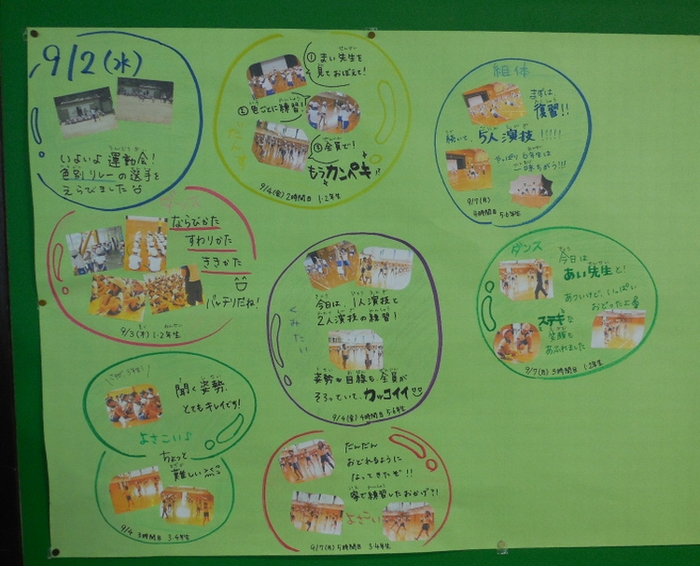 9/2(水)
いよいよ運動会!
色別リレーの選手を
えらびました
①まい先生を
見ておぼえて!
②色ごとに練習!
③全員で!
もうカンペキ!!
9/4(金)2時間目 1・2年生
組体
まずは
復習!!
続いて、5人演技!!!!!
やっぱり6年生は
9/7(月)
4時間目 5・6年生
ダンス
ならびかた
すわりかた
ききかた
バッチリだね!
9/3(木) 1・2年生
くみたい
今日は、1人演技と
2人演技の練習!
姿勢や目線も、全員が
そろっていて、カッコイイ
9/4(金)4時間目 5・6年生
ダンス
今日は
あい先生と!
あついけど、いっぱい
おどったよ
ステキな
笑顔も
あふれました
9/7(月)3時間目 1・2年生
聞く姿勢、
とてもキレイです!
よさこい♪
ちょっと
難しい
9/4 3時間目 3・4年生
だんだん
おどれるように
なってきたぞ!!
家で練習したおかげ?!
よさこい
9/7(月)5時間目 3・4年生